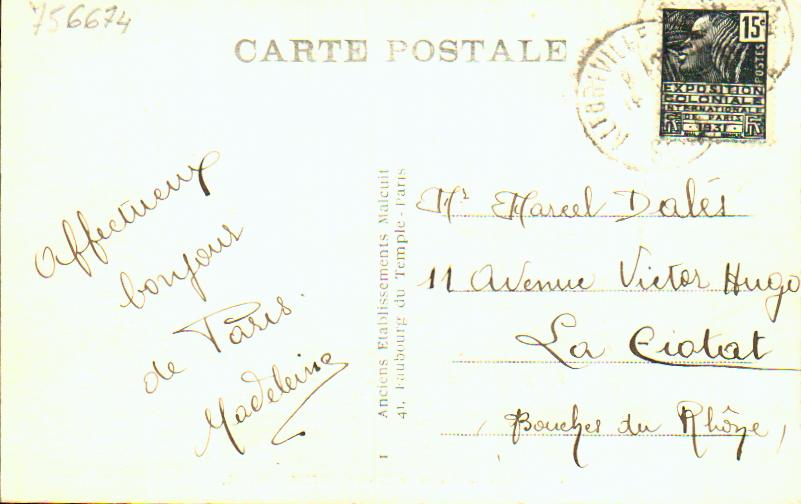 756674
CARTE POSTALE
15c
POSTES
EXPOSITION
COLONIALE
INTERNATIONALE
DE PARIS
1931
Affectueux
bonjour
de Paris.
Madeleine
1 Anciens Etablissements Malcuit
41, Faubourg du Temple - Paris
Mr Marcel Dalés
11 Avenue Victor Hugo
La Ciotat
(Bouches du Rhône)